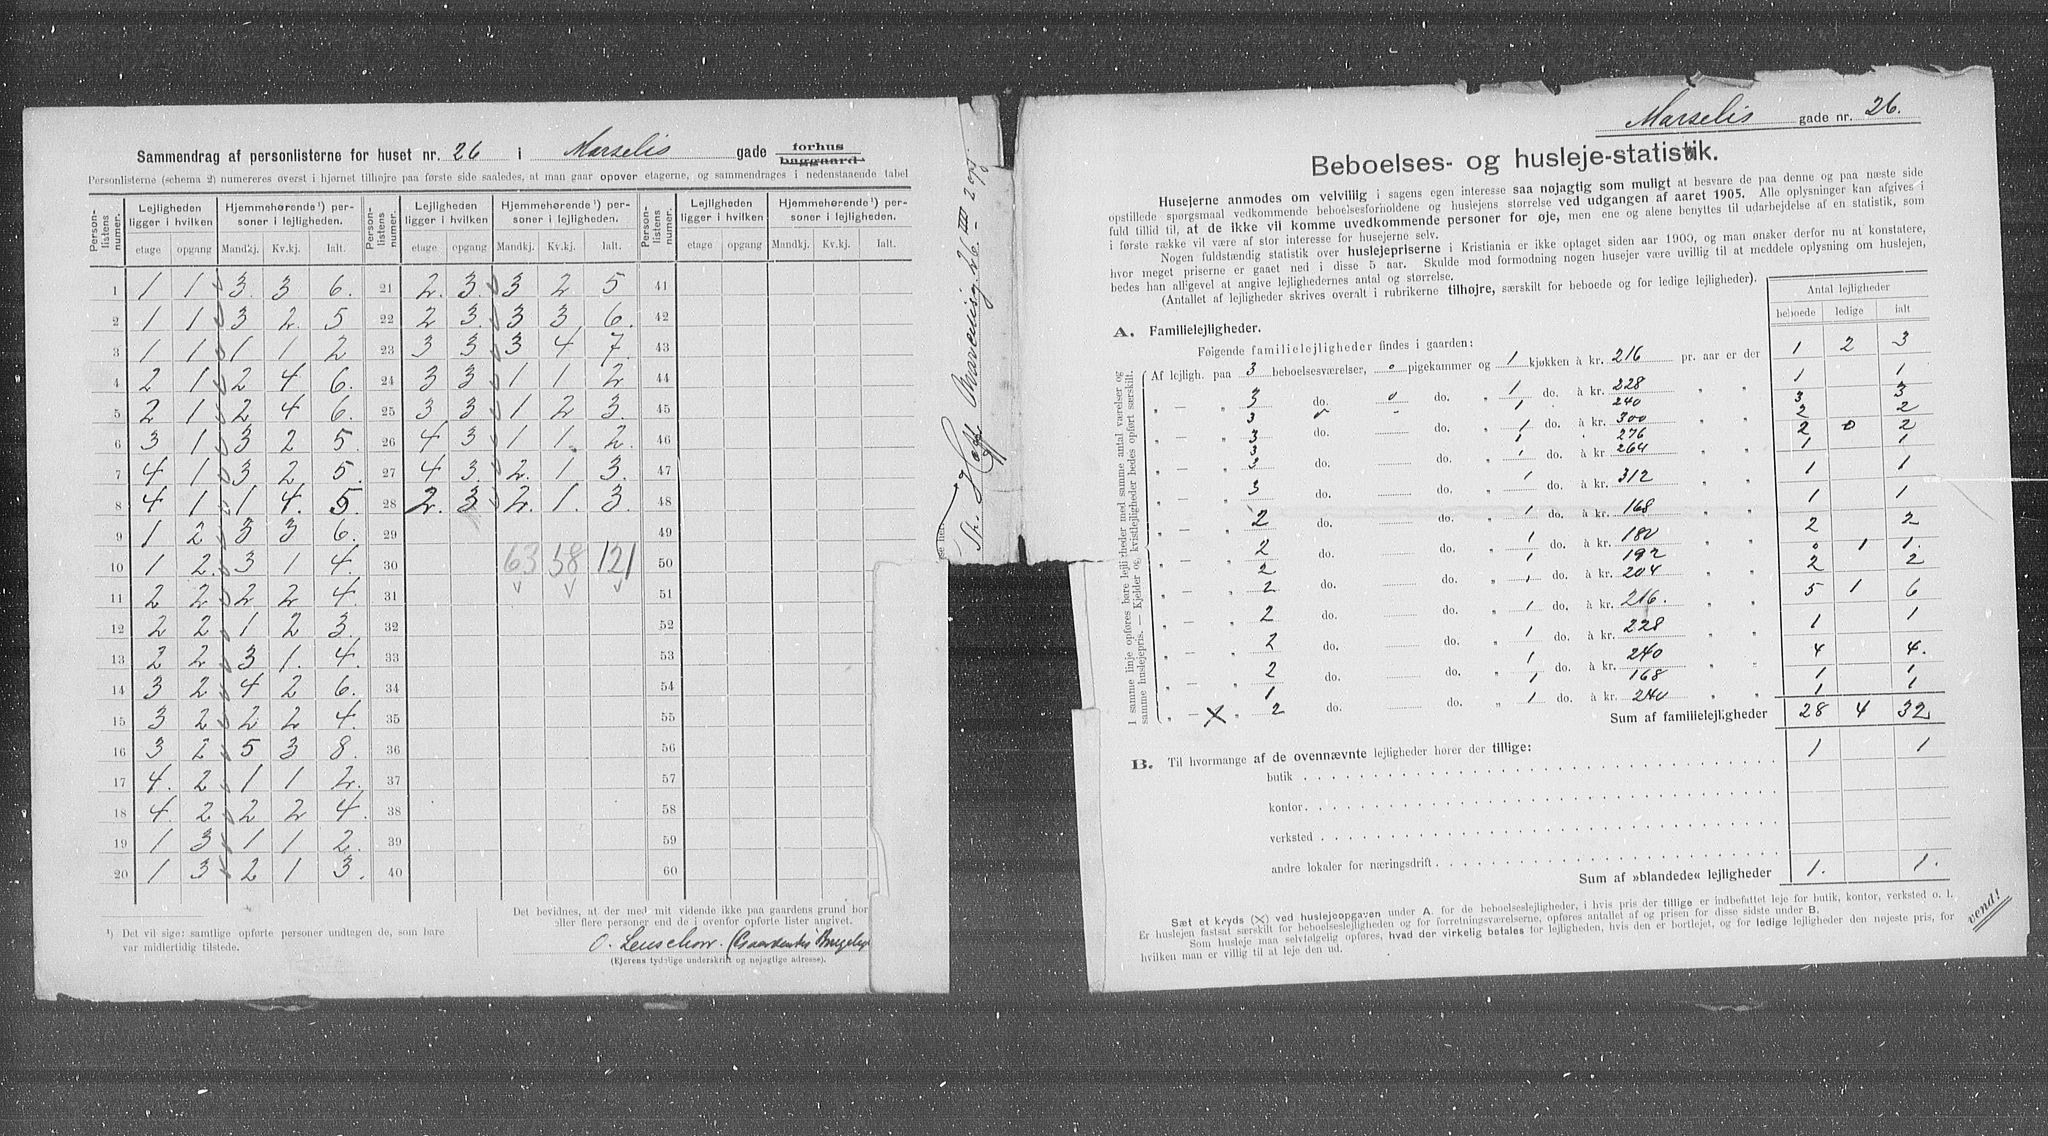 Sammendrag af personlisterne for huset nr. 26 i Marselis gade forhus
baggaard
Personlisterne (schema 2) numereres øverst i hjørnet tilhøjre paa første side saaledes, at man gaar opover etagerne, og sammendrages i nedenstaaende tabel
Person-listens numer. Lejligheden ligger i hvilken Hjemmehørende ¹) personer i lejligheden. Person-listens numer. Lejligheden ligger i hvilken Hjemmehørende ¹) personer i lejligheden. Person-listens numer. Lejligheden ligger i hvilken Hjemmehørende ¹) personer i lejligheden.
etage opgang Mandkj. Kv.kj. Ialt. etage opgang Mandkj. Kv.kj. Ialt. etage opgang Mandkj. Kv.kj. Ialt.
1 1 1 3. 3 6. 21 2. 3. 3 2 5 41
2 1 1 3 2. 5 22 2 3. 3 3 6. 42
3 1 1 1 1 2 23 3 3 3 4 7. 43
4 2 1 2 4 6. 24 3 3 1 1 2 44
5 2 1 2 4 6. 25 3 3 1 2 3. 45
6 3 1 3 2 5 26 4 3 1 1. 2. 46
7 4 1 3 2 5. 27 4 3. 2. 1 3. 47
8 4 1 1 4. 5. 28 2. 3 2. 1. 3. 48
9 1 2 3 3 6. 29 49
10 1 2. 3 1 4. 30 63 58 121 50
11 2 2 2 2 4. 31 51
12 2 2 1 2 3. 32 52
13 2 2 3 1. 4. 33 53
14 3 2 4 2 6. 34 54
15 3 2 2 2 4. 35 55
16 3 2 5 3 8. 36 56
17 4. 2 1 1 2. 37 57
18 4. 2 2 2 4. 38 58
19 1 3 1 1 2. 39 59
20 1 3 2 1 3. 40 60
¹) Det vil sige: samtlige opførte personer undtagen de, som bare
var midlertidig tilstede.
Det bevidnes, at der med mit vidende ikke paa gaardens grund bor
eller flere personer end de i ovenfor opførte lister angivet.
O. Lenschow.
(Ejerens tydelige underskrift og nøjagtige adresse).
Th. Hoff
Marselis gade nr. 26.
Beboelses- og husleje-statistik.
Husejerne anmodes om velvillig i sagens egen interesse saa nøjagtig som muligt at besvare de paa denne og paa næste side
opstillede spørgsmaal vedkommende beboelsesforholdene og huslejens størrelse ved udgangen af aaret 1905. Alle oplysninger kan afgives i
fuld tillid til, at de ikke vil komme uvedkommende personer for øje, men ene og alene benyttes til udarbejdelse af en statistik, som
i første række vil være af stor interesse for husejerne selv.
Nogen fuldstændig statistik over huslejepriserne i Kristiania er ikke optaget siden aar 1900, og man ønsker derfor nu at konstatere,
hvor meget priserne er gaaet ned i disse 5 aar. Skulde mod formodning nogen husejer være uvillig til at meddele oplysning om huslejen,
bedes han alligevel at angive lejlighedernes antal og størrelse.
(Antallet af lejligheder skrives overalt i rubrikerne tilhøjre, særskilt for beboede og for ledige lejligheder).
Antal lejligheder
beboede ledige ialt
A. Familielejligheder.
Følgende familielejligheder findes i gaarden:
I samme linje opføres bare lejligheder med samme antal værelser og
samme huslejepris. — Kjelder og kvistlejligheder bedes opført særskilt.
Af lejligh. paa 3 beboelsesværelser, o pigekammer og 1 kjøkken à kr. 216 pr. aar er der 1 2 3
„ — „ 3 do. o do. „ 1 do. à kr. 228 „ „ 1 1
3 1 240 3 3
3 do. do. „ 1 do. à kr. 300 „ „ 2 2
3 1 276 2 0 2
3 do. do. „ 1 do. à kr. 264 „ „ 1 1
„ — „ 3 do. do. „ 1 do. à kr. 312 „ „ 1 1
„ — „ 2 do. do. „ 1 do. à kr. 168 „ „ 1 1
„ — „ 2 do. do. „ 1 do. à kr. 180 „ „ 2 2
2 1 192 0 1 1.
„ — „ 2 do. do. „ 1 do. à kr. 204 „ „ 2 2
„ — „ 2 do. do. „ 1 do. à kr. 216. „ „ 5 1 6
„ — „ 2 do. do. „ 1 do. à kr. 228 „ „ 1 1
„ — „ 2 do. do. „ 1 do. à kr. 240 „ „ 4 4.
1 1 168 1 1
„ — X „ 2 do. do. „ 1 do. à kr. 240 „ „ 1 1
Sum af familielejligheder 28 4 32
B. Til hvormange af de ovennævnte lejligheder hører der tillige:
butik 1 1
kontor
verksted
andre lokaler for næringsdrift
Sum af »blandede« lejligheder 1. 1.
Sæt et kryds (X) ved huslejeopgaven under A. for de beboelseslejligheder, i hvis pris der tillige er indbefattet leje for butik, kontor, verksted o. l.
Er huslejen fastsat særskilt for beboelseslejligheden og for forretningsværelserne, opføres antallet af og prisen for disse sidste under B.
Som husleje maa selvfølgelig opføres, hvad der virkelig betales for lejligheden, hvis den er bortlejet, og for ledige lejligheder den nøjeste pris, for
hvilken man er villig til at leje den ud.
vend!